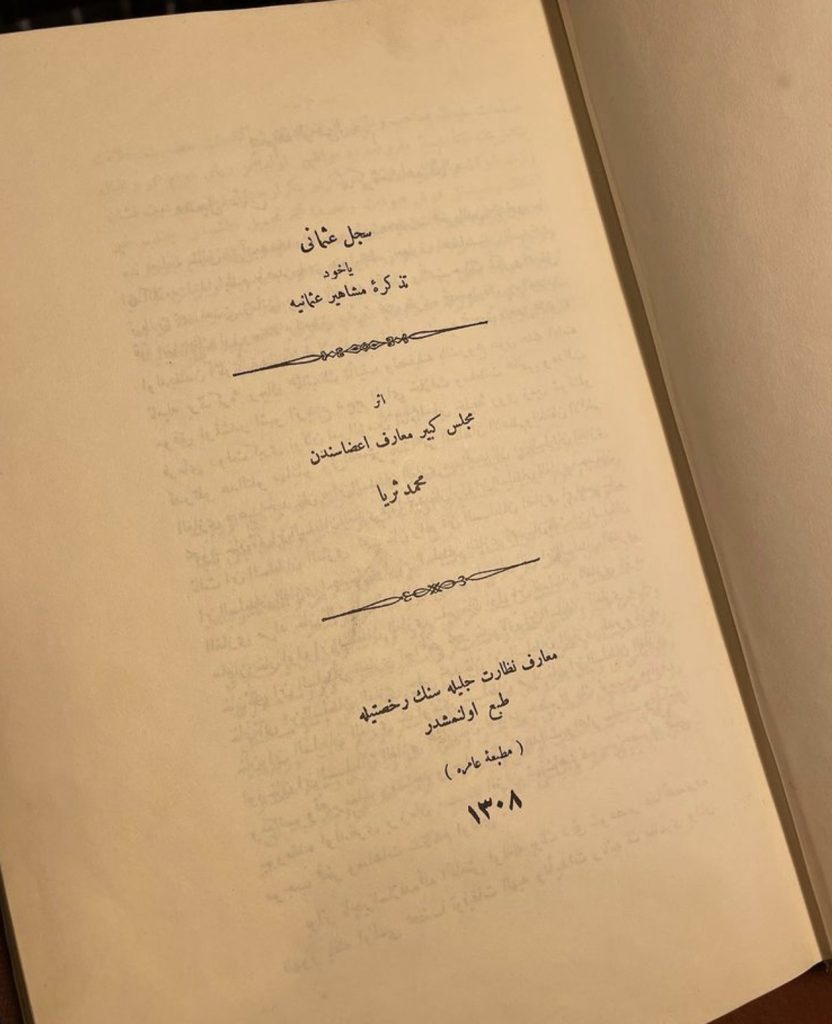 سجل عثمانی
یاخود
تذكرهٔ مشاهیر عثمانیه
اثر
مجلس كبیر معارف اعضاسندن
محمد ثریا
معارف نظارت جلیله سنك رخصتیله
طبع اولنمشدر
( مطبعهٔ عامره )
١٣٠٨